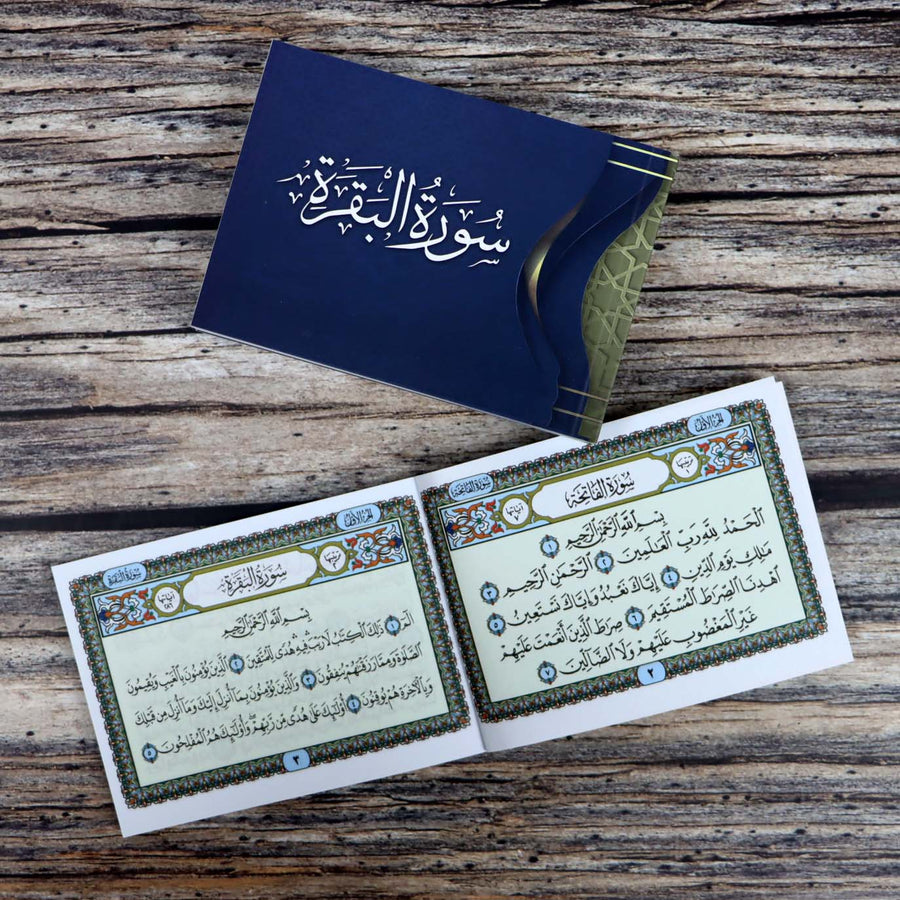 سُورَةُ البَقَرَةِ
الجزء الأول
سورة الفاتحة
ترتيبها ١
سُورَةُ الفَاتِحَةِ
آياتها ٧
بِسْمِ اللَّهِ الرَّحْمَٰنِ الرَّحِيمِ ١
الْحَمْدُ لِلَّهِ رَبِّ الْعَالَمِينَ ٢ الرَّحْمَٰنِ الرَّحِيمِ ٣
مَالِكِ يَوْمِ الدِّينِ ٤ إِيَّاكَ نَعْبُدُ وَإِيَّاكَ نَسْتَعِينُ ٥
اهْدِنَا الصِّرَاطَ الْمُسْتَقِيمَ ٦ صِرَاطَ الَّذِينَ أَنْعَمْتَ عَلَيْهِمْ
غَيْرِ الْمَغْضُوبِ عَلَيْهِمْ وَلَا الضَّالِّينَ ٧
٢
الجزء الأول
سورة البقرة
ترتيبها ٢
سُورَةُ البَقَرَةِ
آياتها ٢٨٦
بِسْمِ اللَّهِ الرَّحْمَٰنِ الرَّحِيمِ
الم ١ ذَٰلِكَ الْكِتَابُ لَا رَيْبَ فِيهِ هُدًى لِلْمُتَّقِينَ ٢ الَّذِينَ يُؤْمِنُونَ بِالْغَيْبِ وَيُقِيمُونَ
الصَّلَاةَ وَمِمَّا رَزَقْنَاهُمْ يُنْفِقُونَ ٣ وَالَّذِينَ يُؤْمِنُونَ بِمَا أُنْزِلَ إِلَيْكَ وَمَا أُنْزِلَ مِنْ قَبْلِكَ
وَبِالْآخِرَةِ هُمْ يُوقِنُونَ ٤ أُولَٰئِكَ عَلَىٰ هُدًى مِنْ رَبِّهِمْ وَأُولَٰئِكَ هُمُ الْمُفْلِحُونَ ٥
٣